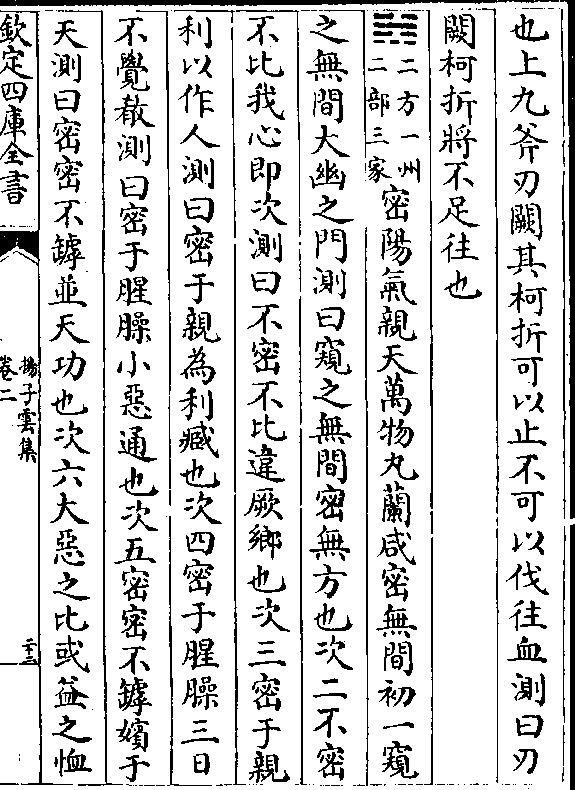 也上九斧刃闕其柯折可以止不可以伐往血測曰刃
闕柯折將不足往也
䷁二方一州二部三家密陽氣親天萬物丸蘭咸密無間初一窺
之無間大幽之門測曰窺之無間密無方也次二不密
不比我心即次測曰不密不比違厥鄉也次三密于親
利以作人測曰密于親為利臧也次四密于腥臊三日
不覺殽測曰密于腥臊小惡通也次五密密不罅嬪于
天測曰密密不罅並天功也次六大惡之比或益之恤
欽定四庫全書
揚子雲集
卷二
二十三